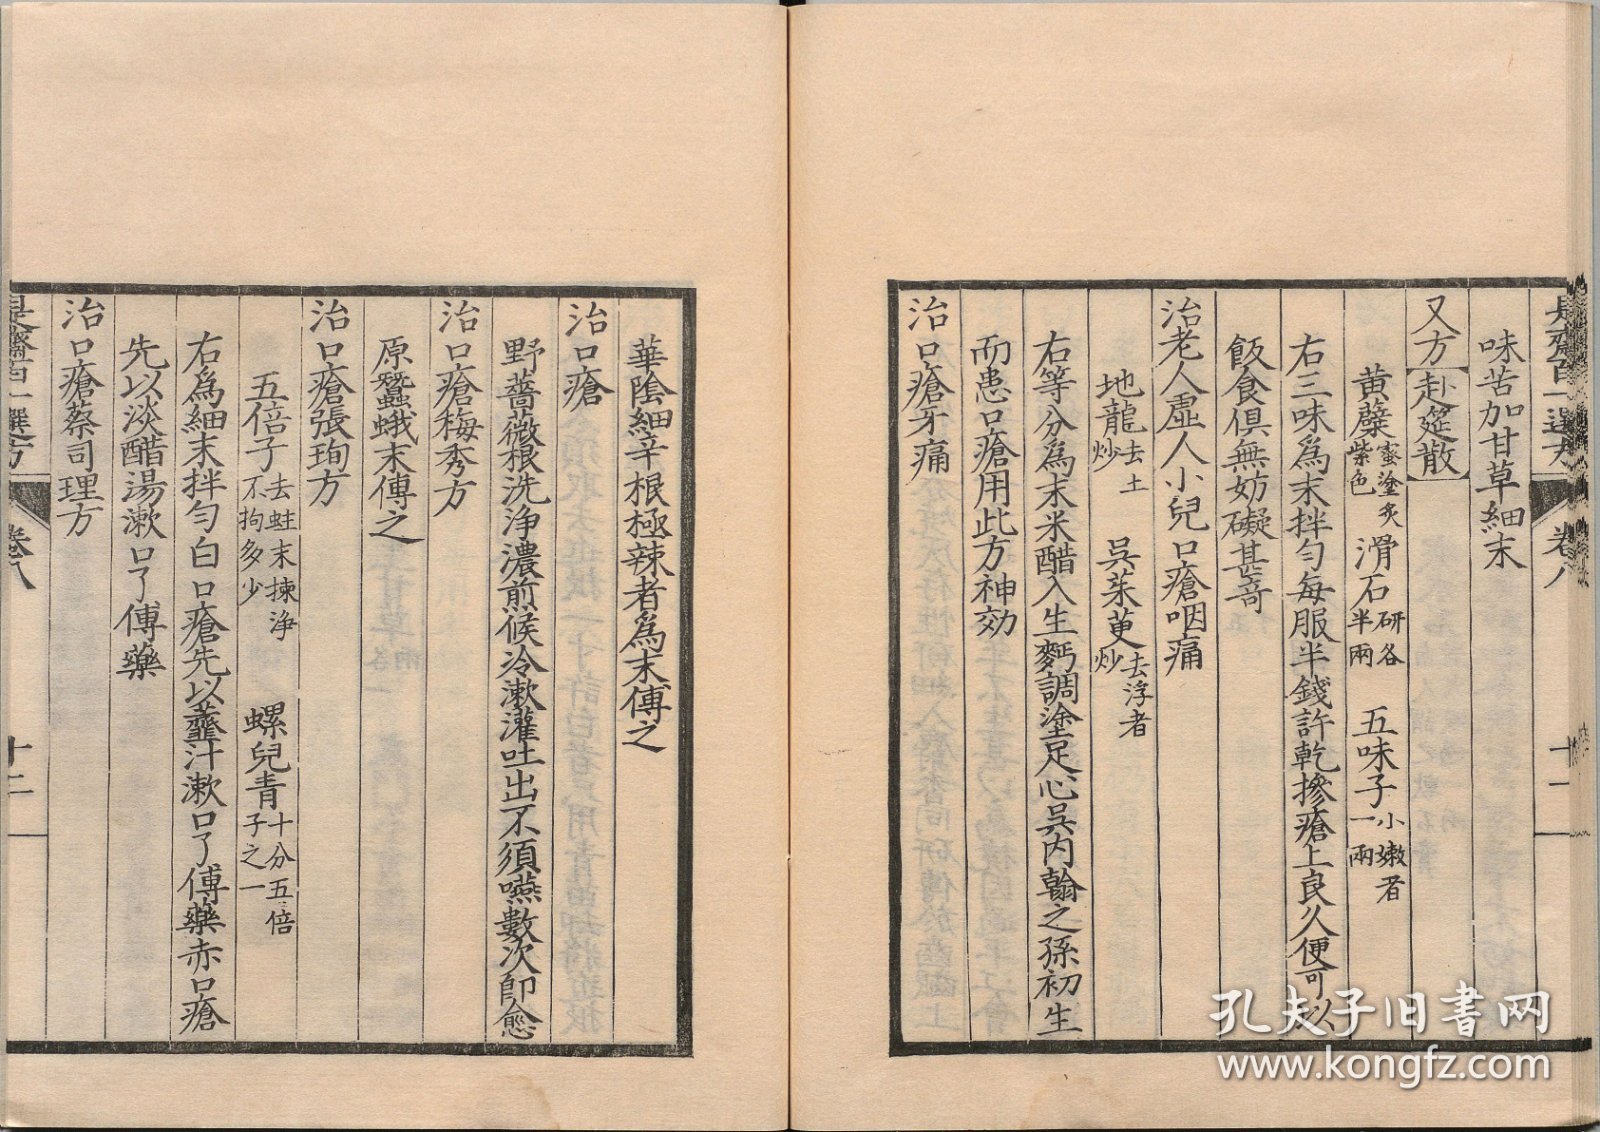 是齋百一選方 卷八 十一
味苦加甘草細末
又方 赴筵散
黄蘗蜜塗炙紫色 滑石研各半兩 五味子小嫩者一兩
右三味爲末拌匀每服半錢許乾摻瘡上良久便可以
飯食俱無妨礙甚竒
治老人虛人小兒口瘡咽痛
地龍去土炒 吳茱萸去浮者炒
右等分爲末米醋入生麪調塗足心吳内翰之孫初生
而患口瘡用此方神効
治口瘡牙痛
華隂細辛根極辣者爲末傅之
治口瘡
野薔薇根洗浄濃煎候冷漱灌吐出不須嚥數次即愈
治口瘡梅秀方
原蠶蛾末傅之
治口瘡張珣方
五倍子去蛀末揀浄不拘多少 螺兒青十分五倍子之一
右爲細末拌匀白口瘡先以虀汁漱口了傅藥赤口瘡
先以淡醋湯漱口了傅藥
治口瘡蔡司理方
是齋百一選方 卷八 十二
孔夫子旧书网
www.kongfz.com